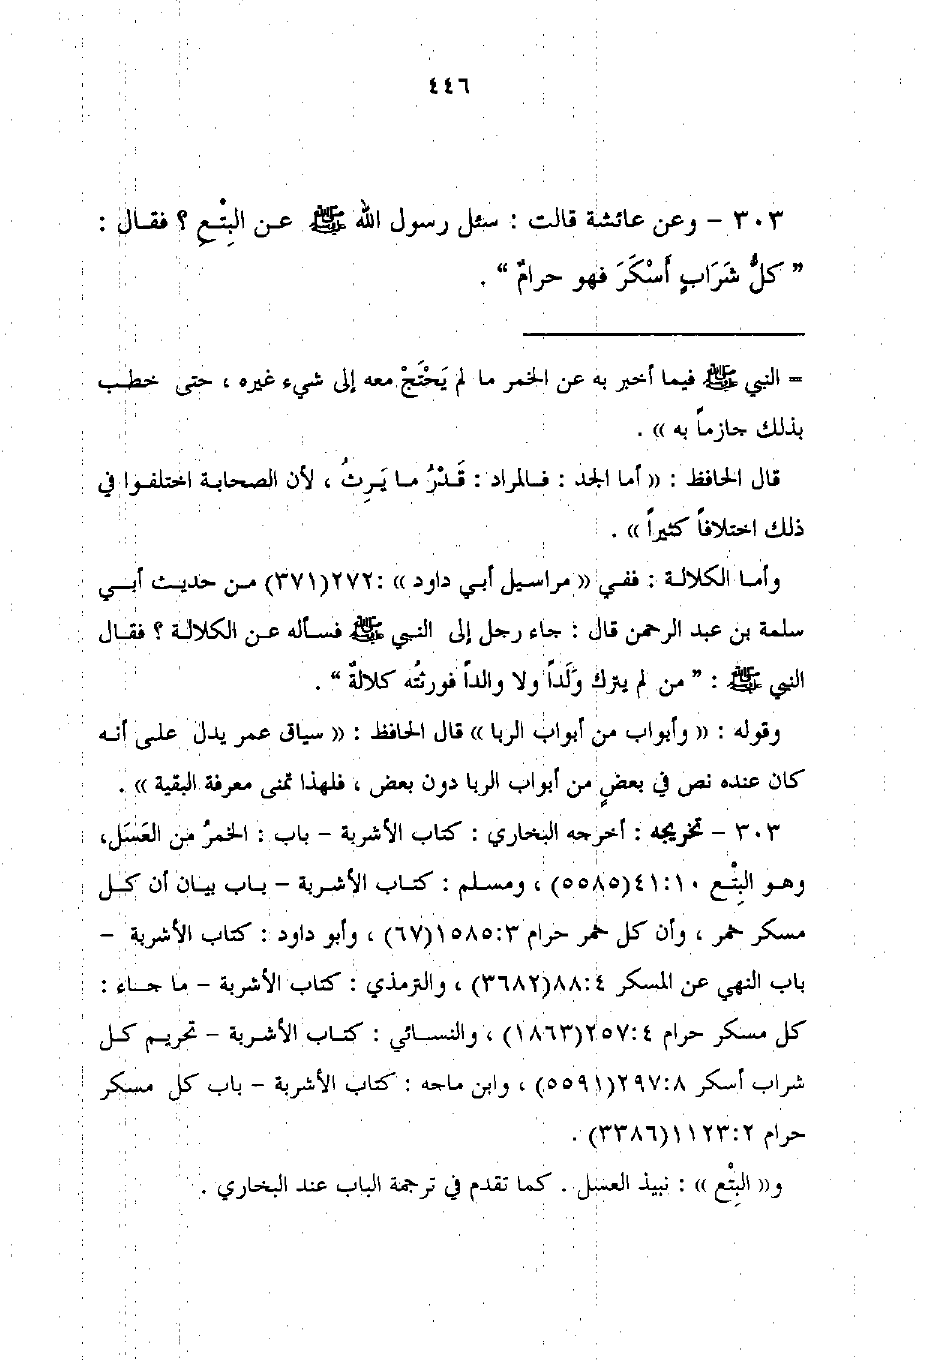 ٤٤٦
٣٠٣ – وعن عائشة قالت : سئل رسول الله ﷺ عـن البِتْـعِ ؟ فقـال :
” كلُّ شَرَابٍ أَسْكَرَ فهو حرامٌ “ .
= النبي ﷺ فيما أخبر به عن الخمر ما لم يَحْتَجْ معه إلى شيء غيره ، حتى خطـب
بذلك جازماً به » .
قال الحافظ : « أما الجد : فـالمراد : قَـدْرُ مـا يَـرِثُ ، لأن الصحابـة اختلفـوا في
ذلك اختلافاً كثيراً » .
وأمـا الكلالـة : ففـي « مراسـيل أبـي داود » :٢٧٢(٣٧١) مـن حديـث أبـي
سلمة بن عبد الرحمن قال : جاء رجل إلى النـبي ﷺ فسـأله عـن الكلالـة ؟ فقـال
النبي ﷺ : ” من لم يترك وَلَداً ولا والداً فورثتُه كلالةٌ “ .
وقوله : « وأبواب من أبواب الربا » قال الحافظ : « سياق عمر يدل علـى أنـه
كان عنده نص في بعضٍ من أبواب الربا دون بعض ، فلهذا تمنى معرفة البقية » .
٣٠٣ – تخريجه : أخرجه البخاري : كتاب الأشربة – باب : الخمرُ من العَسَل،
وهـو البِتْـع ٤١:١٠(٥٥٨٥) ، ومسـلم : كتـاب الأشـربة – بـاب بيـان أن كـل
مسكر خمر ، وأن كل خمر حرام ١٥٨٥:٣(٦٧) ، وأبو داود : كتاب الأشربة –
باب النهي عن المسكر ٨٨:٤(٣٦٨٢) ، والترمذي : كتاب الأشربة – ما جـاء :
كل مسكر حرام ٢٥٧:٤(١٨٦٣) ، والنسـائي : كتـاب الأشـربة – تحريـم كـل
شراب أسكر ٢٩٧:٨(٥٥٩١) ، وابن ماجه : كتاب الأشربة – باب كل مسكر
حرام ١١٢٣:٢(٣٣٨٦) .
و« البِتْع » : نبيذ العسل . كما تقدم في ترجمة الباب عند البخاري .